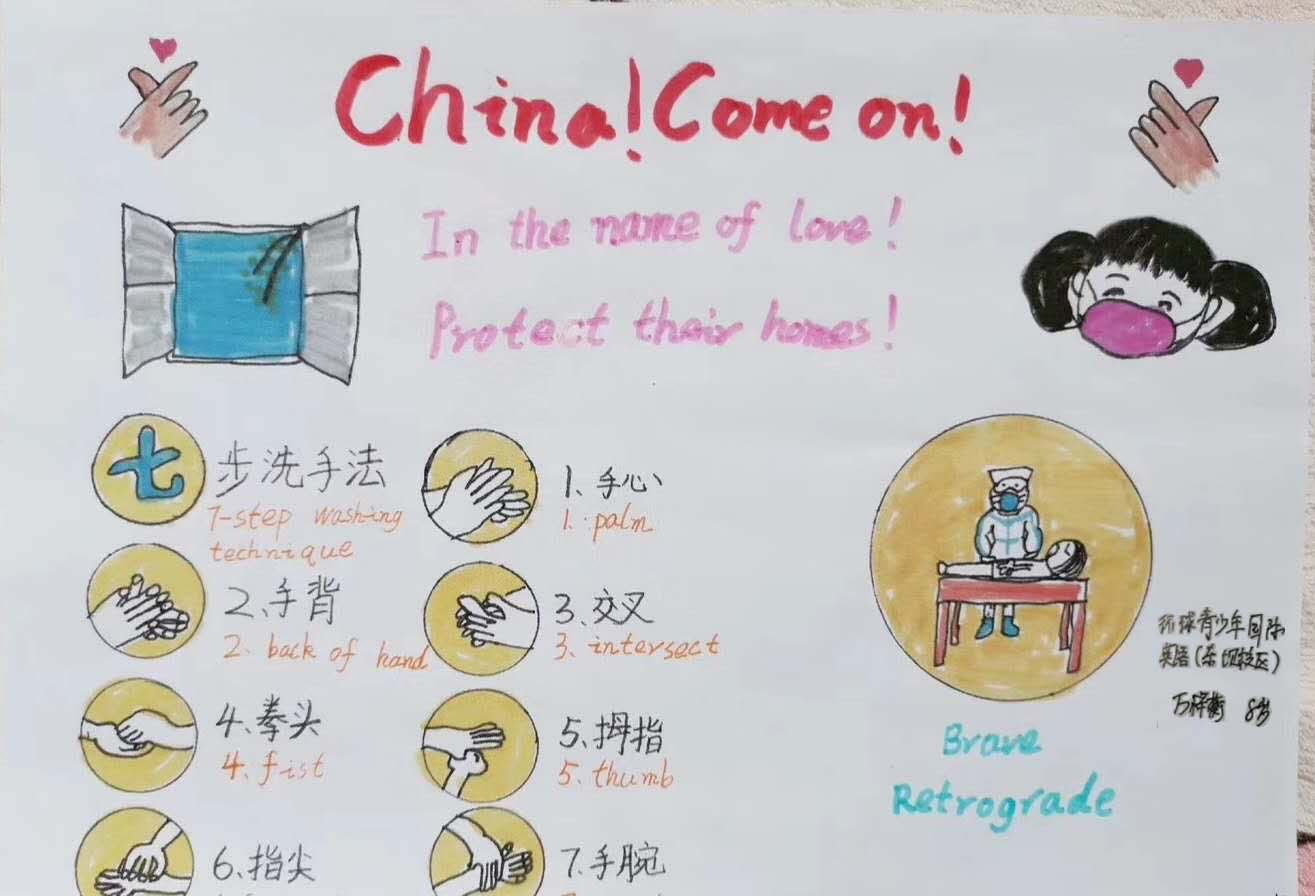 China! Come on!
In the name of love!
Protect their homes!
七步洗手法
7-step washing
technique
1、手心
1. palm
2、手背
2. back of hand
3、交叉
3、intersect
4、拳头
4、fist
5、拇指
5、thumb
6、指尖
7、手腕
Brave
Retrograde
环球青少年国际
英语(东坝校区)
8岁